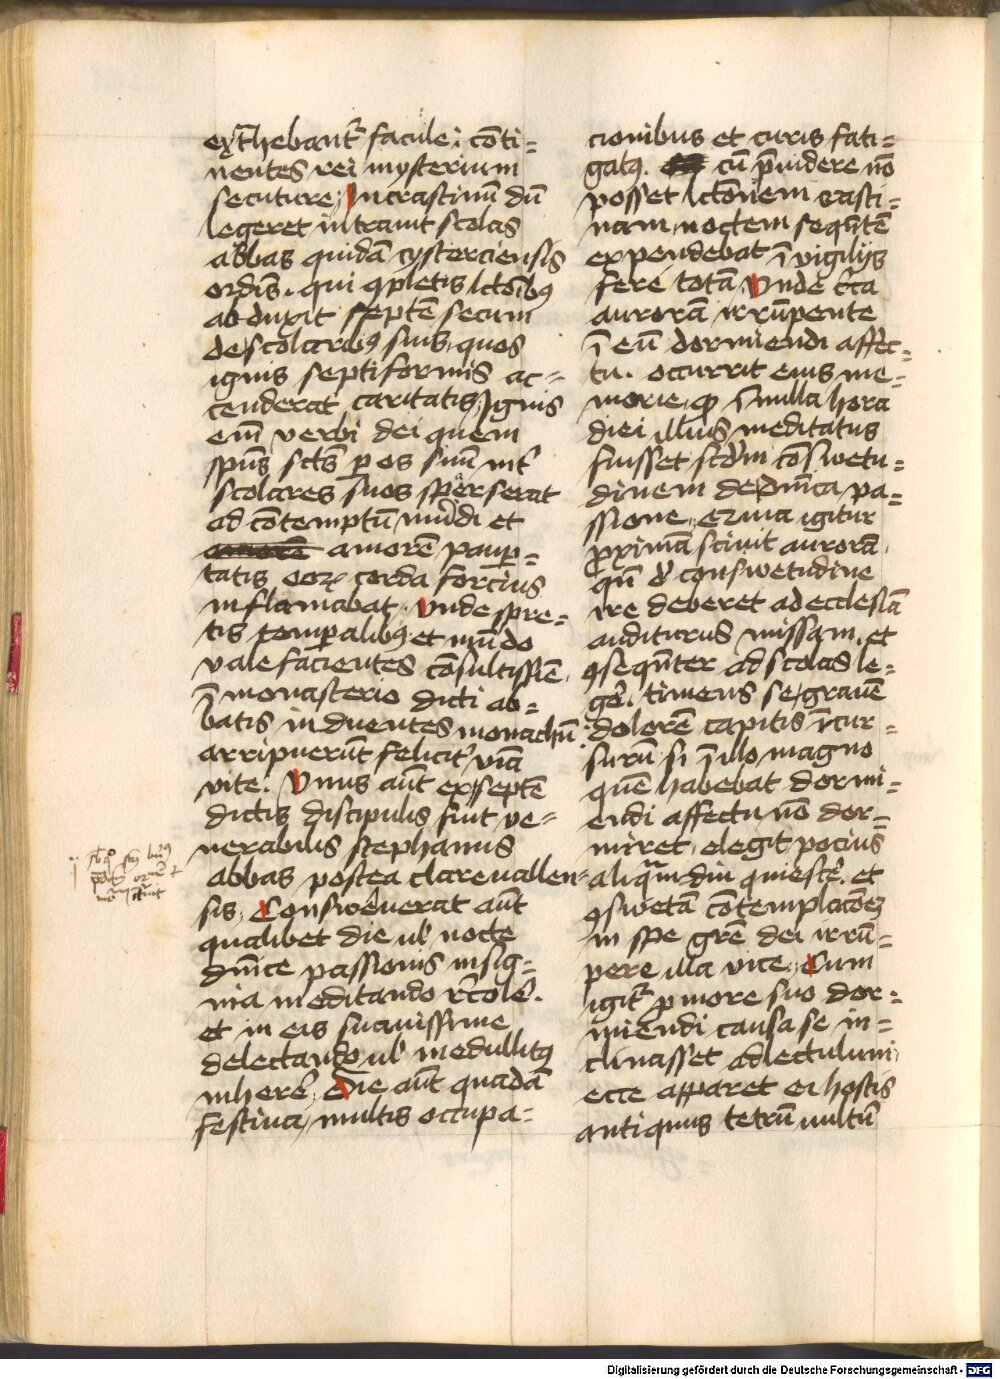 exthebant᷑ facule, cōti=
nentes rei mysterium
secuture, Incrastinū dū
legeret intraut scolas
abbas quidā cysterciensis
ordīs. qui ꝯpletis lctōibꝰ
abduxit septē secum
de scolaribꝰ suis, quos
ignis septiformis ac=
cenderat caritatis, Ignis
eni᷑ verbi dei quem
spūs sctūs p̱ os suū int᷑
scolares suos sp̱serat
ad cōtemptū mūdi et
amorē paup̱=
tatis eoꝝ corda forcius
inflāmabat. Vnde spre=
tis temp̱alibꝰ et mūdo
vale facientes cōsultissie᷑,
ī monasterio dicti ab=
batis induentes monachū
arripuerūt felicit᷑ viā
vite. Vnus aūt ex septē
dictis discipulis fuit ve=
nerabilis stephanus
abbas postea clareuallen=
sis, Consweuerat aūt
qualibet die ul᷑ nocte
dnīce passionis insig=
nia meditando rēcole᷑.
et in eis suauissime
delectando ul᷑ medullitꝰ
inhere᷑, Die aūt quadā
festiua, multis occupa=
cionibus et curis fati=
gatꝰ. cū p̄uidere nō
posset lctōnem crasti=
nam noctem seqn̄tē
expendebat ī vigilijs
fere totā Vnde cīca
aurorā irrūpente
ī eū dormiendi affec=
tu. occurrit eius me=
morie, ꝙ ī nulla hora
diei illius meditatus
fuisset scdm̄ cōswetu=
dinem de dnīca pa=
ssione,
p̱ximā sciuit aurorā,
qn̄ ex conswetudine
ire deberet ad ecclesiā
auditurus missam. et
ꝯseqn̄ter ad scolas le=
ge᷑. timens se, grauē
dolorē capitis īcur=
surū si ī illo magno
quē habebat dormi=
endi affectu nō dor=
miret, elegit pocius
aliqm̄diu quiesce᷑. et
ꝯswetā cōtemplacōeꝫ
in spe grē dei irrū=
pere illa vice, Cum
igit᷑ p̱ more suo dor=
miendi causa se in=
clinasset ad lectulum,
ecce apparet ei hostis
antiquus tetrū uultū
Digitalisierung gefördert durch die Deutsche Forschungsgemeinschaft - DFG